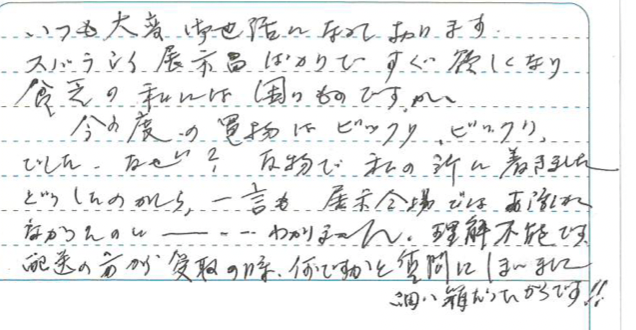 いつも大変お世話になっております
スバラシイ展示品ばかりで すぐ欲しくなり
貧乏の私には困りものですが〜
今の度の買物はビックリ、ビックリ、
でした、なぜ? 反物で私の許に着きました
どうしたのかしら、一言も展示会場では お話しも
なかったのに ――--- わかりませ〜ん。理解不能です
配達の方が受取の際、何ですかと質問してしまいました
細い箱だったからです!!